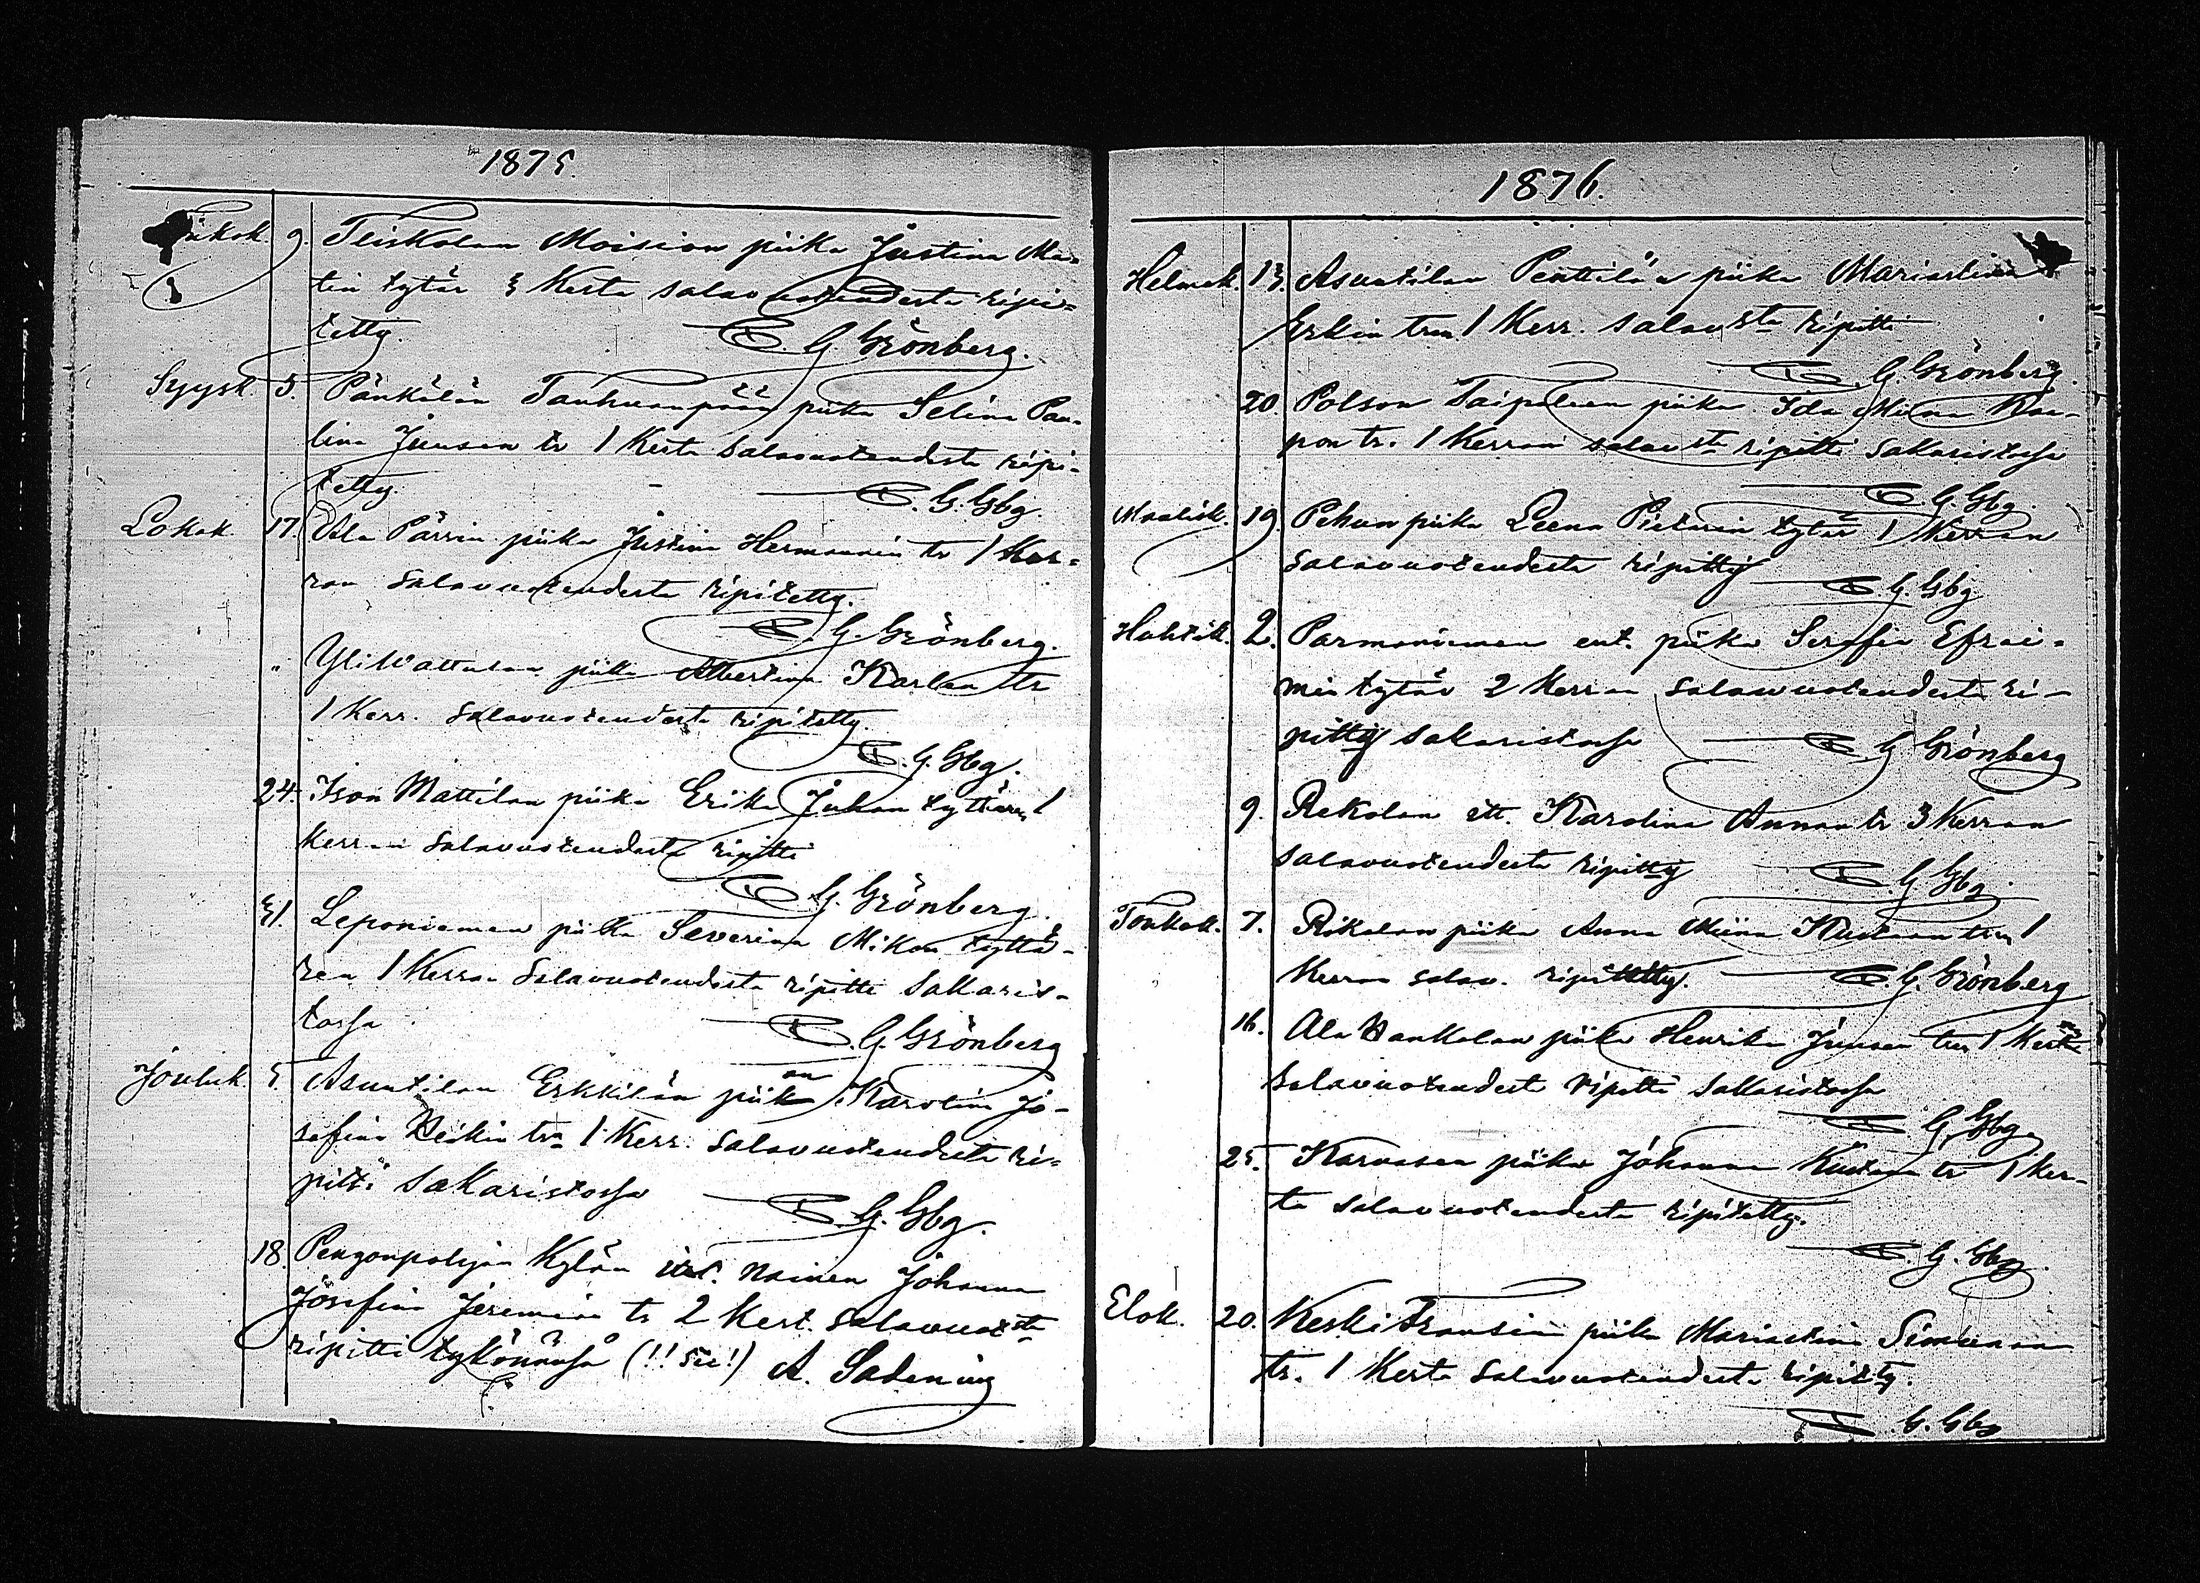 1875.
9. Teiskolan Moision piika Justina Ma-
tin tytär 3 Kerta salavuoteudesta ripi-
tetty. G. Grönberg.
Syysk. 5. Pänkälän Tanhuanpään piika Selina Pau-
lina Juusen tr 1 Kerta salavuoteudesta ripi-
tetty. G. Gbg.
Lokak. 17. Ala Pärrin piika Justina Hermannin tr 1 Ker-
ran salavuoteudesta ripitetty.
G. Grönberg.
" Yli Wattulan piika Albertina Karlen tr
1 Kerr. salavuoteudesta ripitetty.
G. Gbg.
24. Ison Mattilan piika Erika Juhan tyttären 1
Kerran salavuoteudesta ripitti
G. Grönberg.
31. Leponiemen piika Severina Mikon tyttä-
ren 1 Kerran salavuoteudesta ripitti sakaris-
tossa G. Grönberg
Jouluk. 5. Asuntilan Erkkilän piikan Karolina Jo-
sefina Heikin trn 1 Kerr. salavuoteudesta ri-
pitti sakaristossa G. Gbg.
18. Pengonpohjan Kylän itst. nainen Johanna
Josefina Jeremian tr 2 Kert. salavuotta
ripitti tykönänsä (!! sic!) A. Sadenius
1876.
Helmik. 13. Asuntilan Penttilän piika Mariastina
Erkin trn 1 Kerr. salavsta ripitti
G. Grönberg.
20 Polson Taipaleen piika Ida Miina Kaa-
pon tr. 1 Kerran salavsta ripitti sakaristossa
G. Gbg.
Maalisk. 19. Pekun piika Leena Pietarin tytär 1 Kerran
salavuoteudesta ripitty G. Gbg
Huhtik. 2. Parmaniemen ent. piika Serafia Efrai-
min tytär 2 Kerran salavuoteudesta ri-
pitty sakaristossa G. Grönberg
9. Rekolan itt. Karolina Annan tr 3 Kerran
salavuoteudesta ripitty G. Gbg.
Toukok. 7. Rikalan piika Anna Miina Kustaan trn 1
Kerran salav. ripitetty. G. Grönberg
16. Ala Hankalan piika Henrika Juusen trn 1 Kerran
salavuoteudesta ripitti sakaristossa
G. Gbg.
25. Karvasen piika Johanna Kustaan tr 1 ker-
ta salavuoteudesta ripitetty.
G. Gbg.
Elok. 20. Keski Fransin piika Mariastina Simunan
tr. 1 Kerta salavuoteudesta ripitetty.
G. Gbg